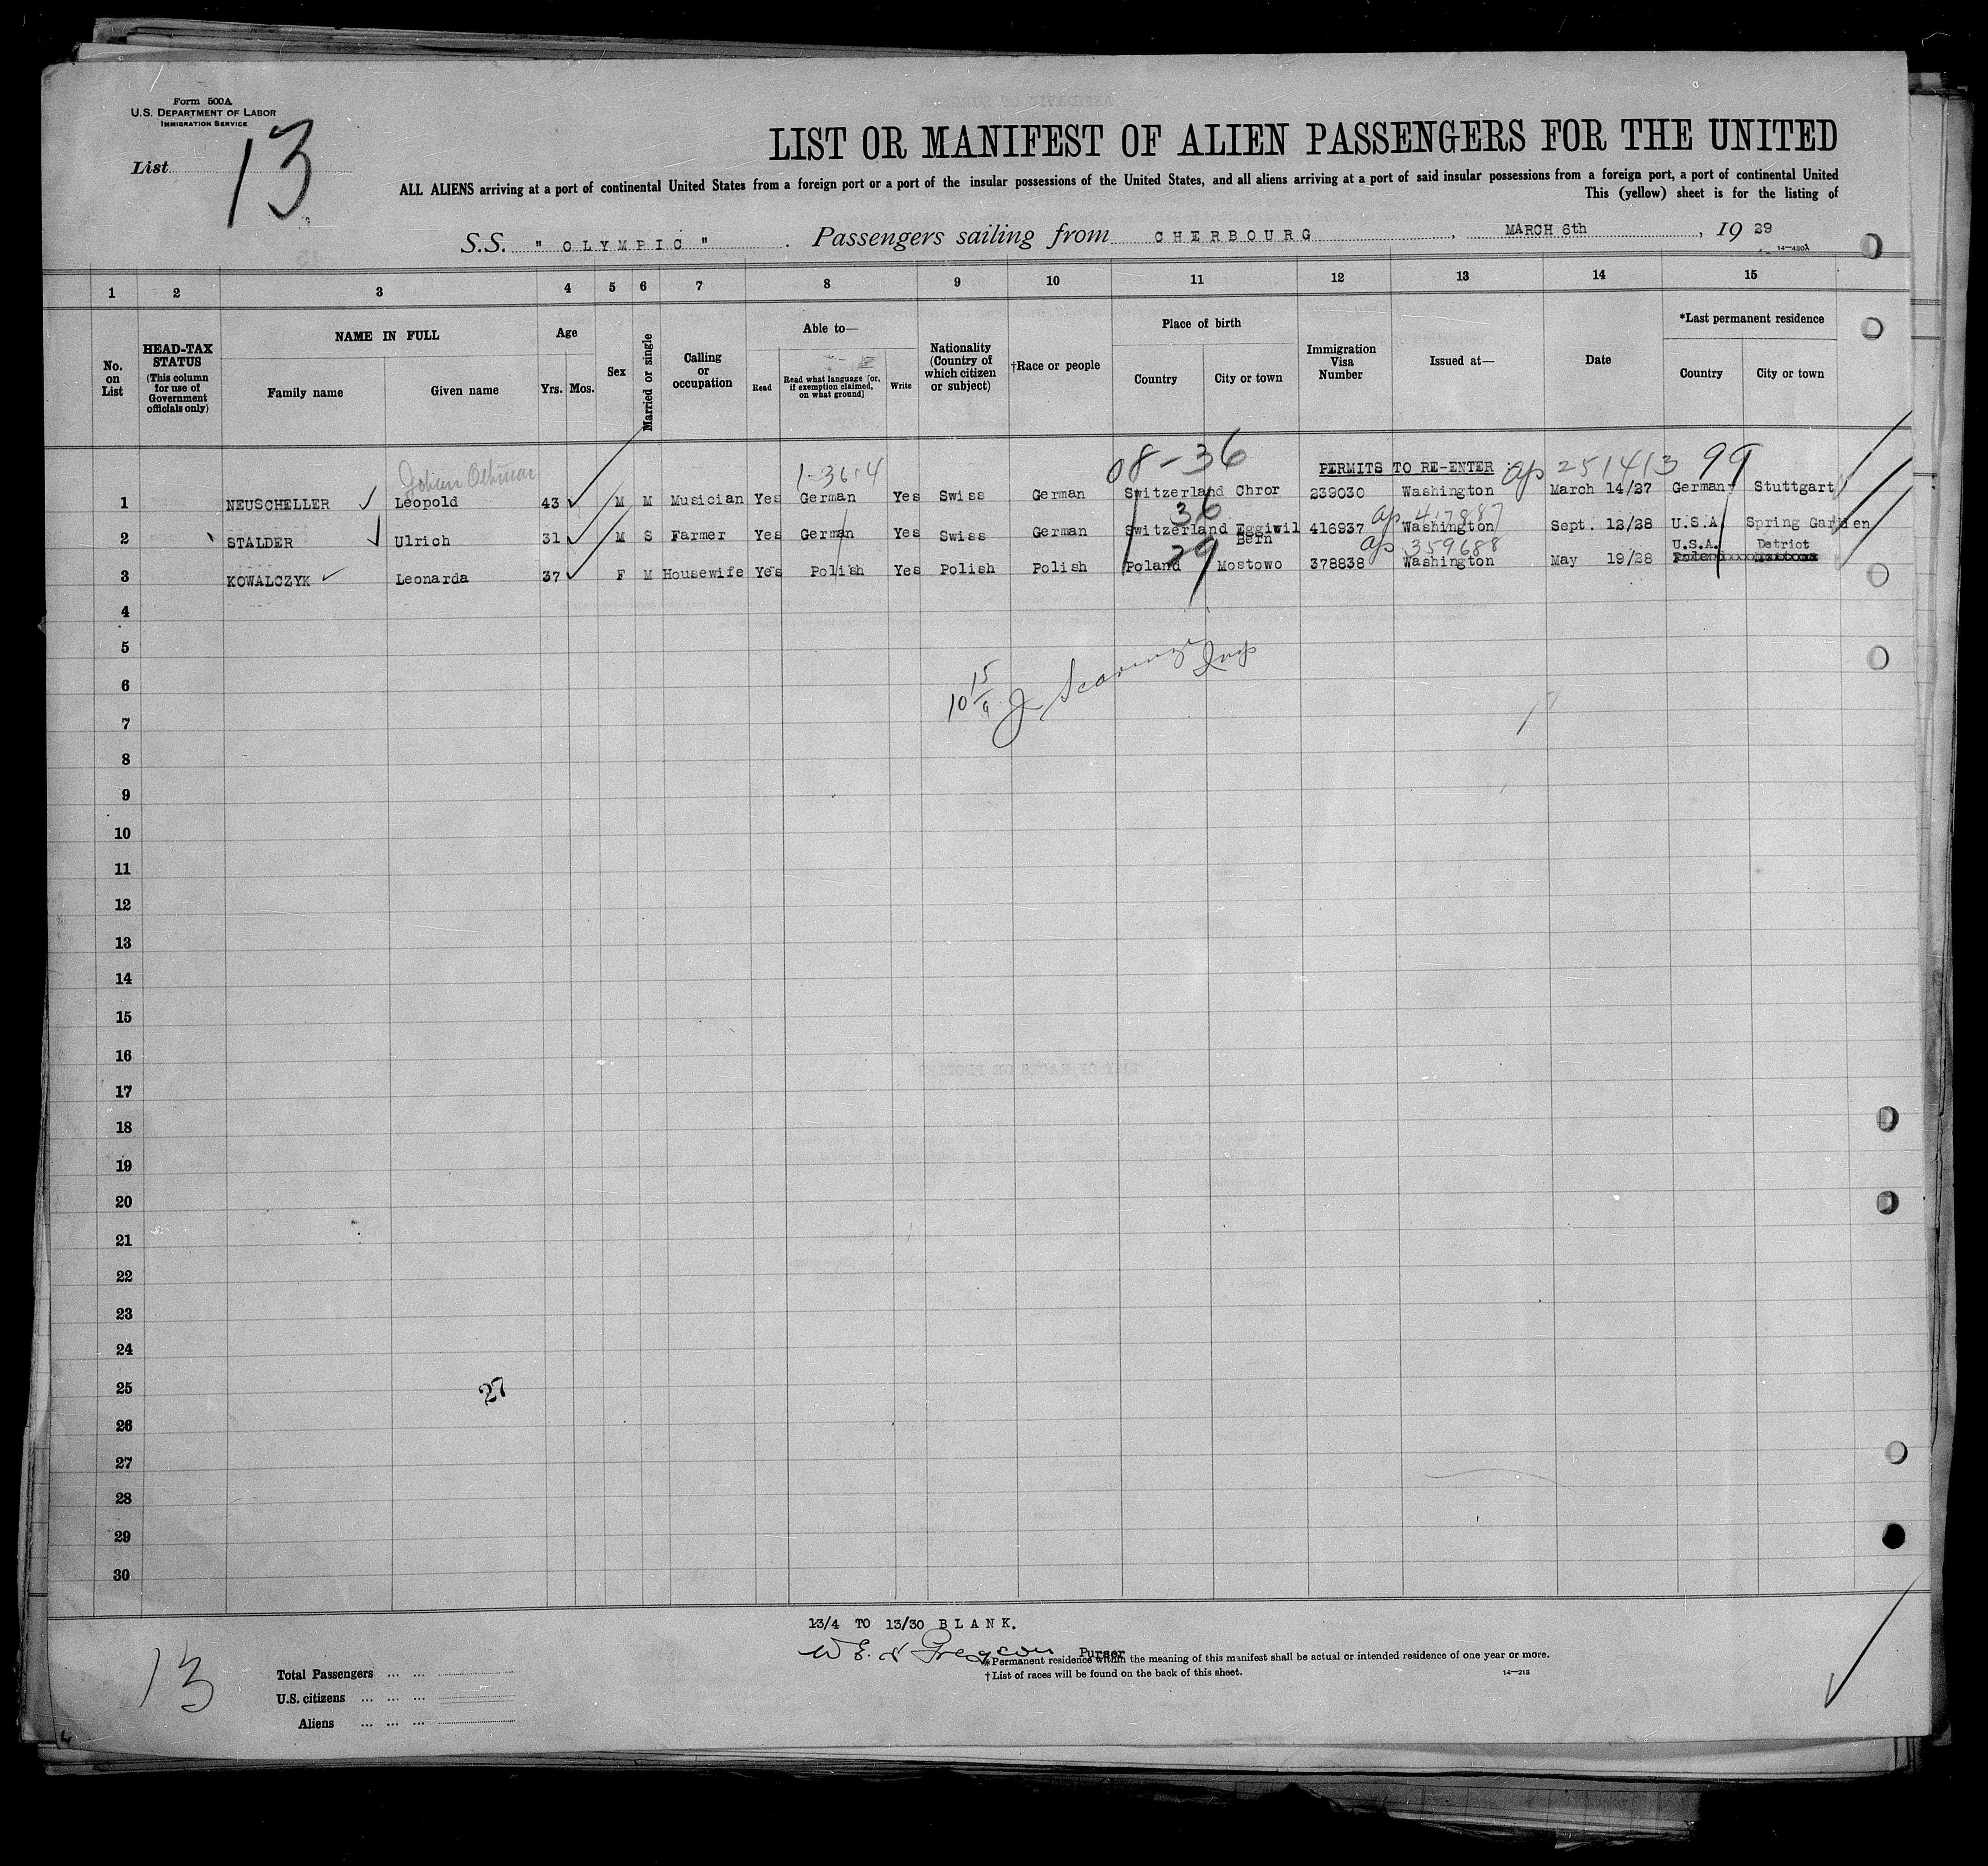 Form 500A
U.S. DEPARTMENT OF LABOR
IMMIGRATION SERVICE
List 13
LIST OR MANIFEST OF ALIEN PASSENGERS FOR THE UNITED
ALL ALIENS arriving at a port of continental United States from a foreign port or a port of the insular possessions of the United States, and all aliens arriving at a port of said insular possessions from a foreign port, a port of continental United
This (yellow) sheet is for the listing of
S.S. " OLYMPIC " . Passengers sailing from CHERBOURG , MARCH 6th , 19 29
14-430A
1 2 3 4 5 6 7 8 9 10 11 12 13 14 15
No. on List
HEAD-TAX STATUS
(This column for use of Government officials only)
NAME IN FULL
Family name Given name
Age
Yrs. Mos.
Sex
Married or single
Calling or occupation
Able to—
Read
Read what language [or, if exemption claimed, on what ground]
Write
Nationality (Country of which citizen or subject)
†Race or people
Place of birth
Country City or town
Immigration Visa Number
Issued at—
Date
*Last permanent residence
Country City or town
08-36 PERMITS TO RE-ENTER ap 251413 99
Johan Othmar 1-3614
1 NEUSCHELLER Leopold 43 M M Musician Yes German Yes Swiss German Switzerland Chror 239030 Washington March 14/27 Germany Stuttgart
36 ap 417887
2 STALDER Ulrich 31 M S Farmer Yes German Yes Swiss German Switzerland Eggiwil Bern 416937 Washington Sept. 12/28 U.S.A. Spring Garden
29 ap 359688 U.S.A. Detriot
3 KOWALCZYK Leonarda 37 F M Housewife Yes Polish Yes Polish Polish Poland Mostowo 378838 Washington May 19/28
4
5
6
7
8
9
10
11
12
13
14
15
16
17
18
19
20
21
22
23
24
25
26
27
28
29
30
10 15/9
27
13/4 TO 13/30 BLANK.
Purser
*Permanent residence within the meaning of this manifest shall be actual or intended residence of one year or more.
†List of races will be found on the back of this sheet.
14-218
13
Total Passengers ... ...
U.S. citizens ... ... ...
Aliens ... ... ...